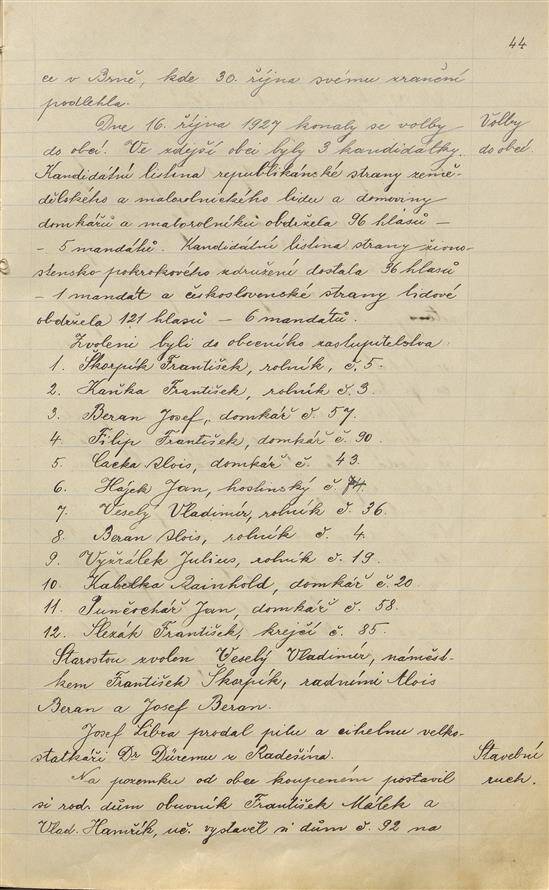 44
ce v Brně, kde 30. října svému zranění
podlehla.
Dne 16. října 1927 konaly se volby
Volby
do obcí. Ve zdejší obci byly 3 kandidátky.
do obcí.
Kandidátní listina republikánské strany země-
dělského a malorolnického lidu a domoviny
domkářů a malorolníků obdržela 96 hlasů –
– 5 mandátů. Kandidátní listina strany živno-
stensko pokrokového združení dostala 36 hlasů
– 1 mandát a československé strany lidové
obdržela 121 hlasů – 6 mandátů.
Zvoleni byli do obecního zastupitelstva:
1. Škorpík František, rolník, č. 5.
2. Kaňka František, rolník č. 3.
3. Beran Josef, domkář č. 57.
4. Filip František, domkář č. 90.
5. Cacka Alois, domkář č. 43.
6. Hájek Jan, hostinský č.
7. Veselý Vladimír, rolník č. 36.
8. Beran Alois, rolník č. 4.
9. Julius, rolník č. 19.
10. Kabelka Rainhold, domkář č. 20.
11. Punčochář Jan, domkář č. 58.
12. Slezák František, krejčí č. 85.
Starostou zvolen Veselý Vladimír, náměst-
kem František Škorpík, radními Alois
Beran a Josef Beran.
Josef Libra prodal pilu a cihelnu velko-
statkáři Dr Düremu z Radešína.
Stavební
Na pozemku od obce koupeném postavil
ruch.
si rod. dům obuvník František Málek a
Vlad. Hamřík, uč. vystavěl si dům č. 92 na